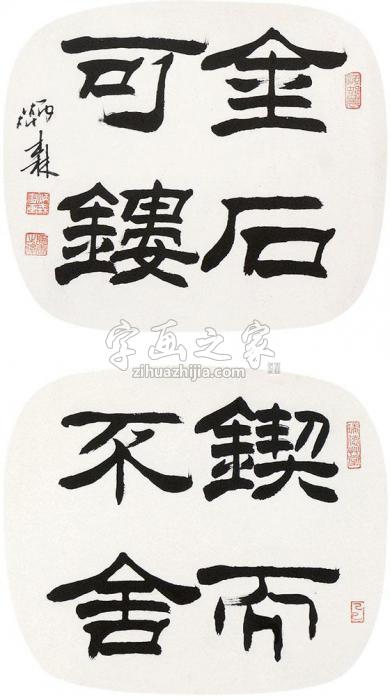 金石
可鏤
炳森
字画之家
zihuazhijia.com
鍥而
不舍